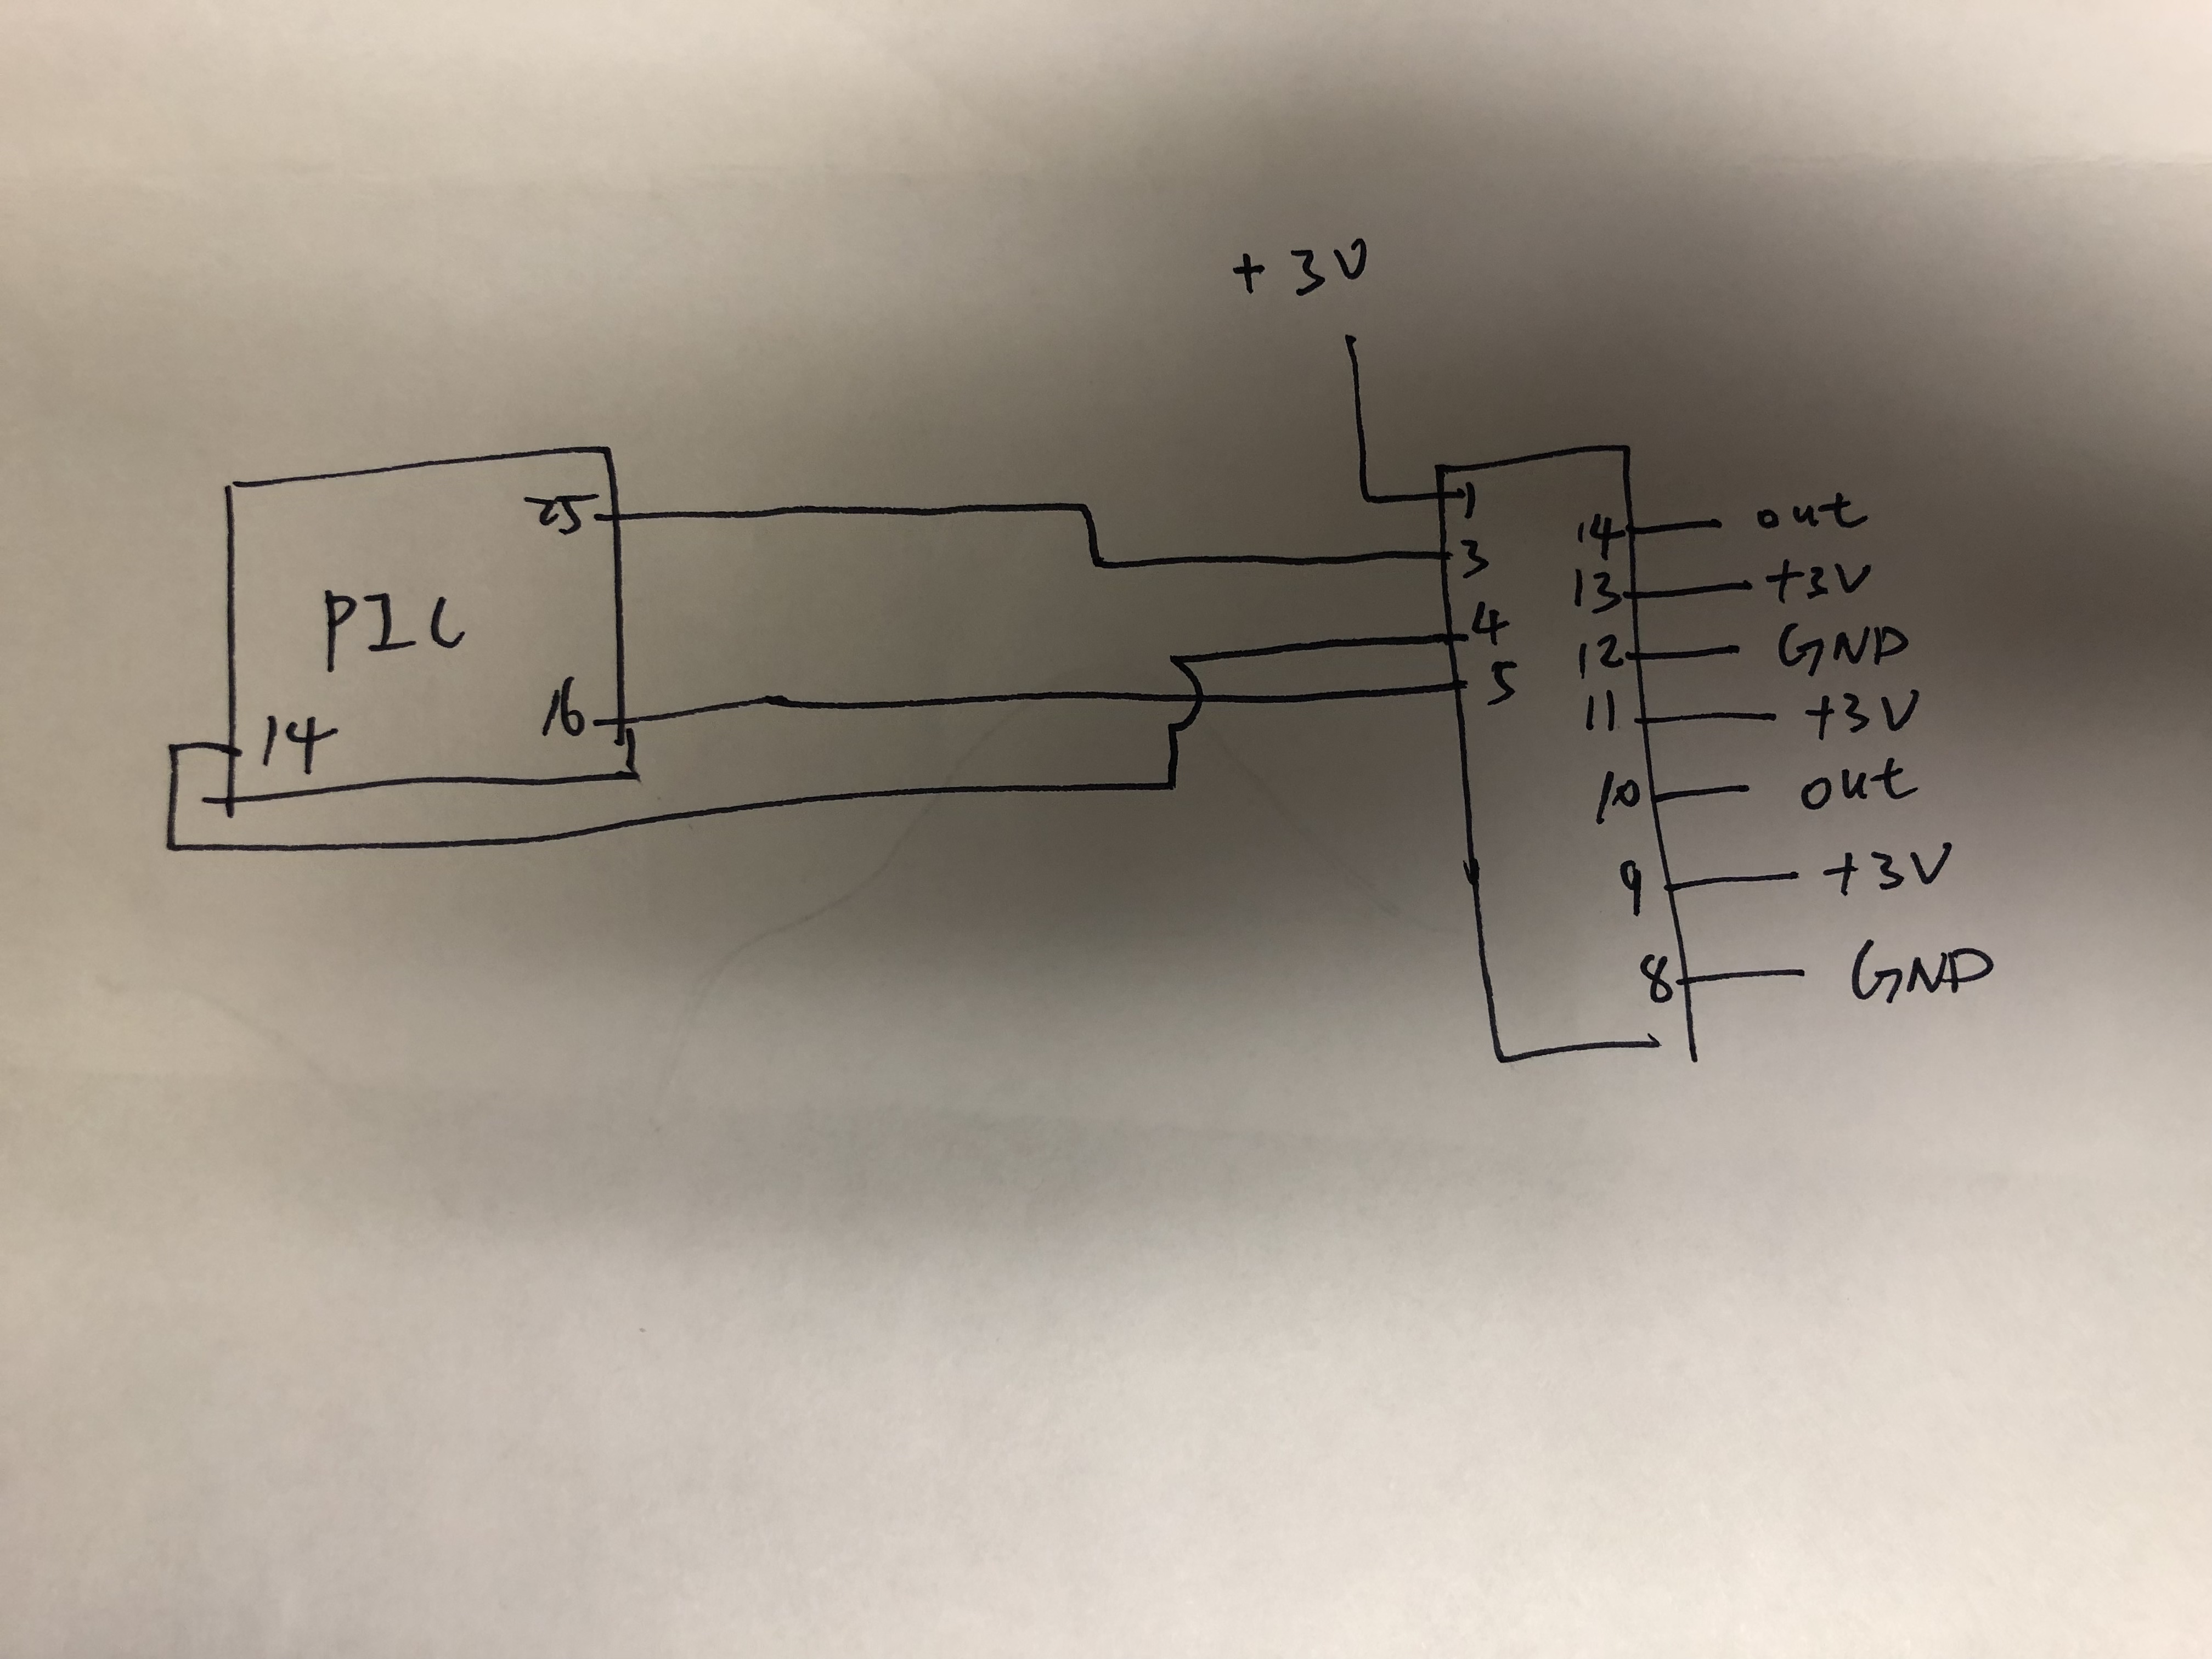 +3V
25
PIC
16
14
1
3
4
5
14 out
13 +3V
12 GND
11 +3V
10 out
9 +3V
8 GND